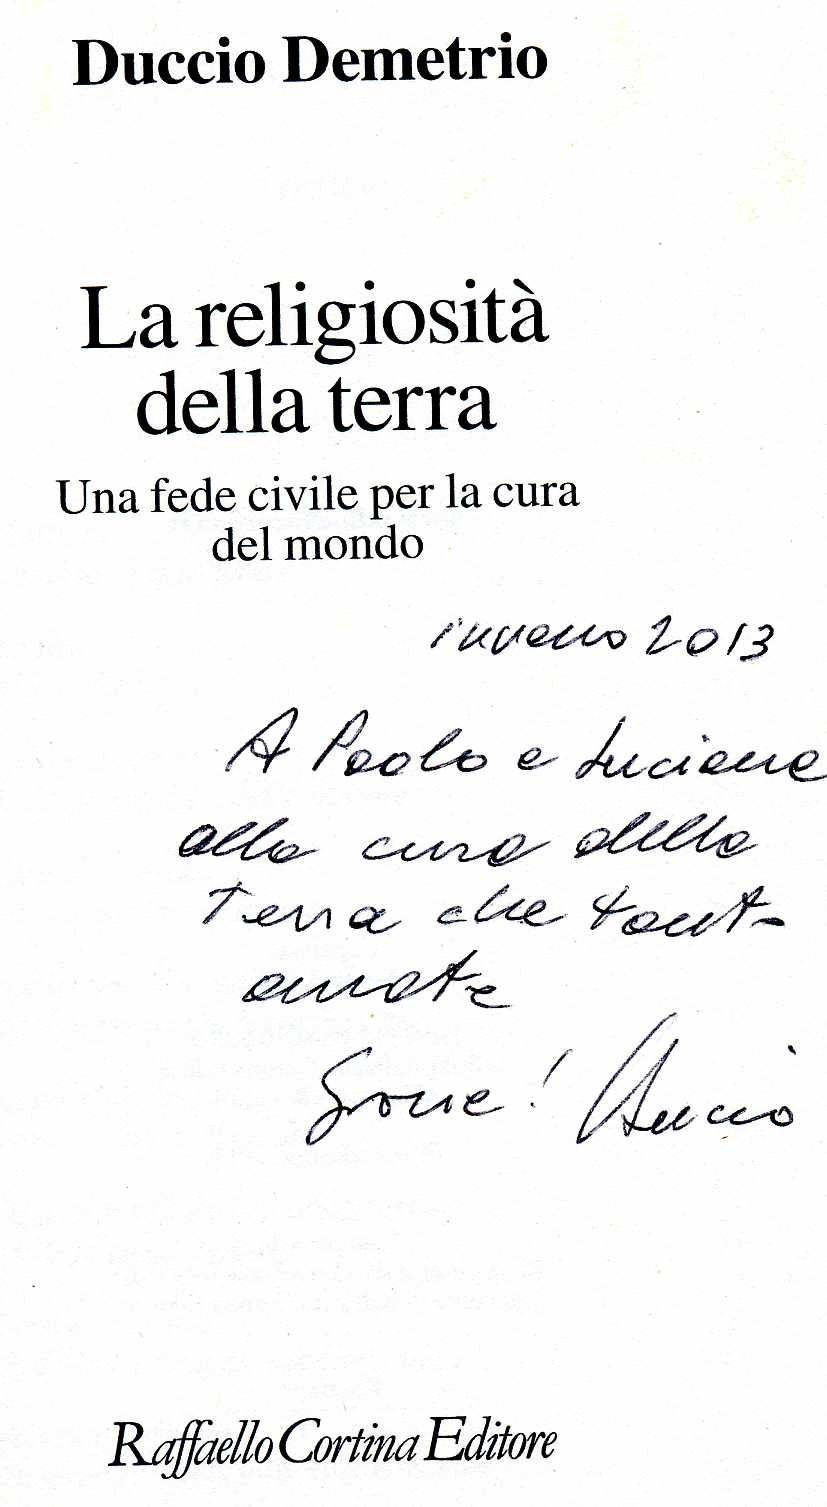 Duccio Demetrio
La religiosità
della terra
Una fede civile per la cura
del mondo
inverno 2013
A Paolo e Luciana
alla cura della
Terra che tant-
amate
Grazie! Duccio
Raffaello Cortina Editore